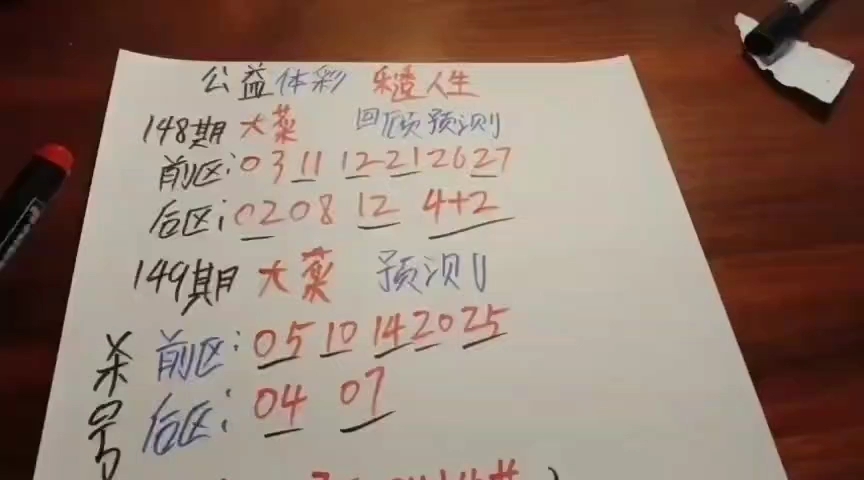 公益体彩 乐透人生
148期 大菜 回顾预测
前区:03 11 12 21 26 27
后区:02 08 12 4+2
149期 大菜 预测
杀号 前区:05 10 14 20 25
后区:04 07